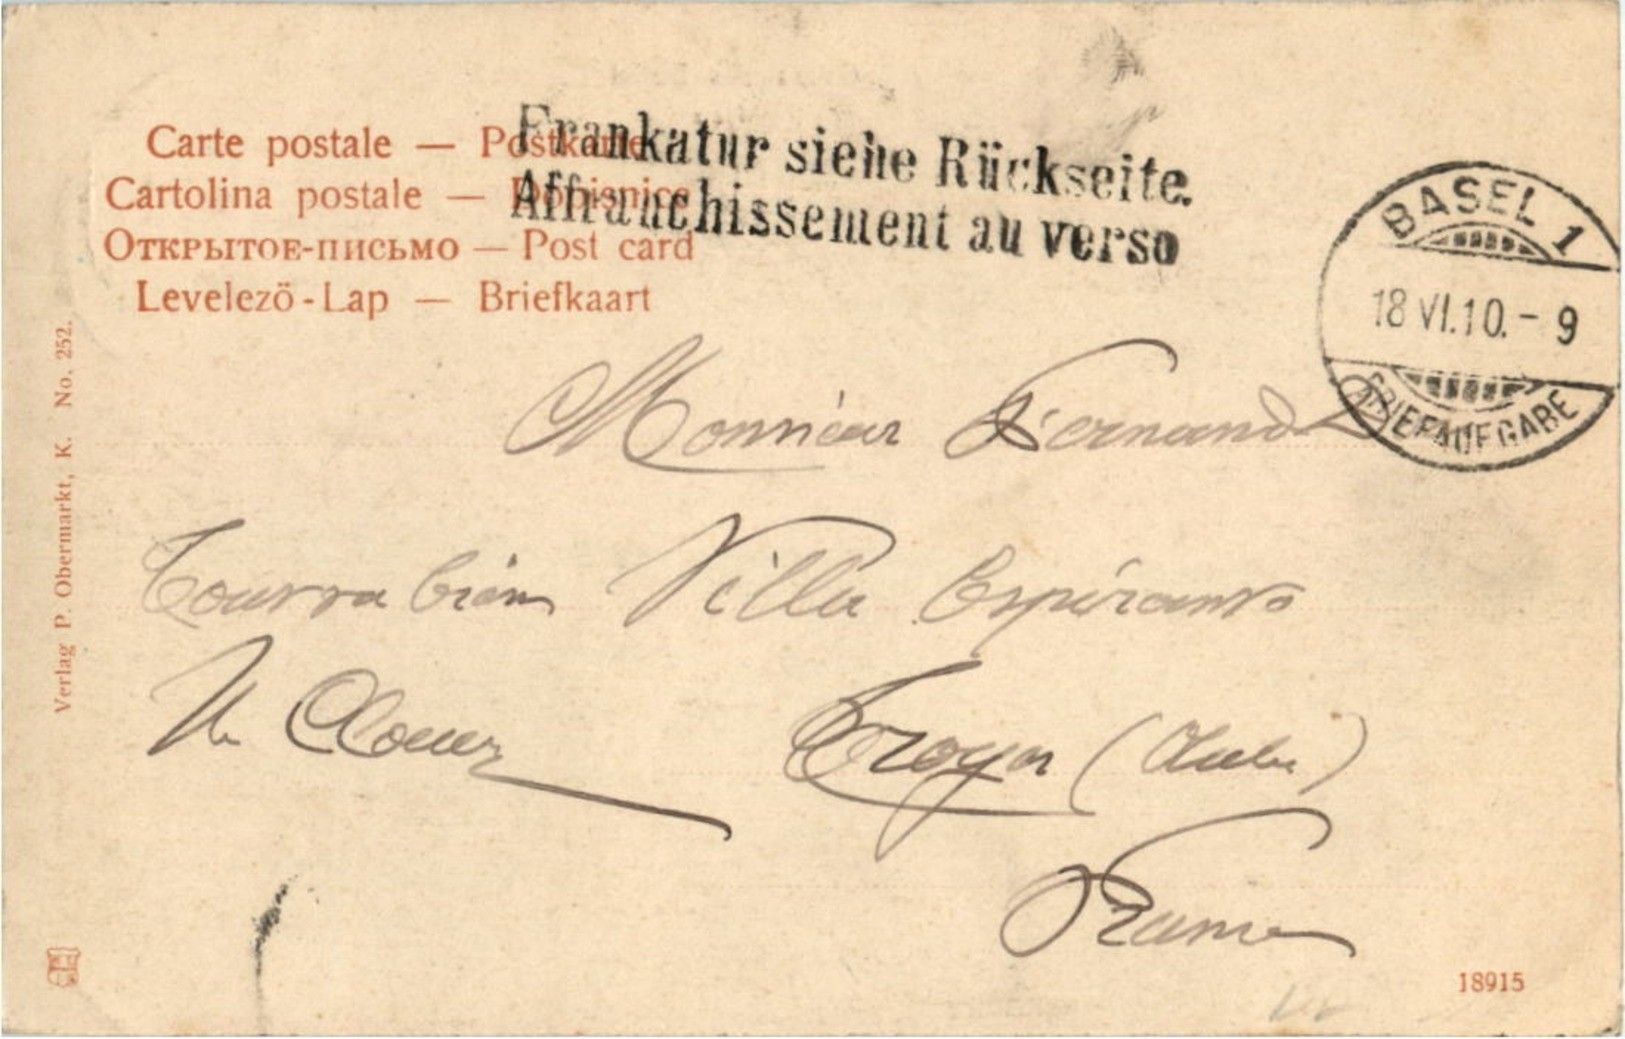 Frankatur siehe Rückseite.
Affranchissement au verso
Carte postale — Postkarte
Cartolina postale — Dopisnice
Открытое-письмо — Post card
Levelező - Lap — Briefkaart
BASEL 1
18 VI.10. - 9
BRIEFAUFGABE
Verlag P. Obermarkt, K. No. 252.
Monsieur Fernand
Villa Espérance
Troyes (Aube)
France
18915